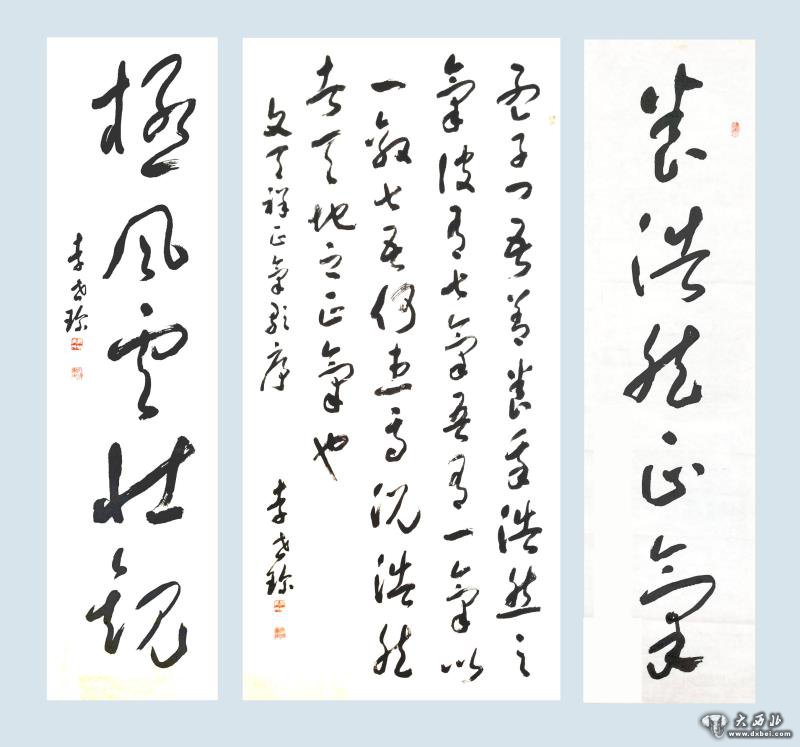 養浩然正氣
孟子曰吾善養吾浩然之
氣彼有七氣吾有一氣以
一敵七吾何患焉況浩然
者天地之正氣也
文天祥正氣歌序
李
極風雲壯觀
李
大西北
www.dxbei.com